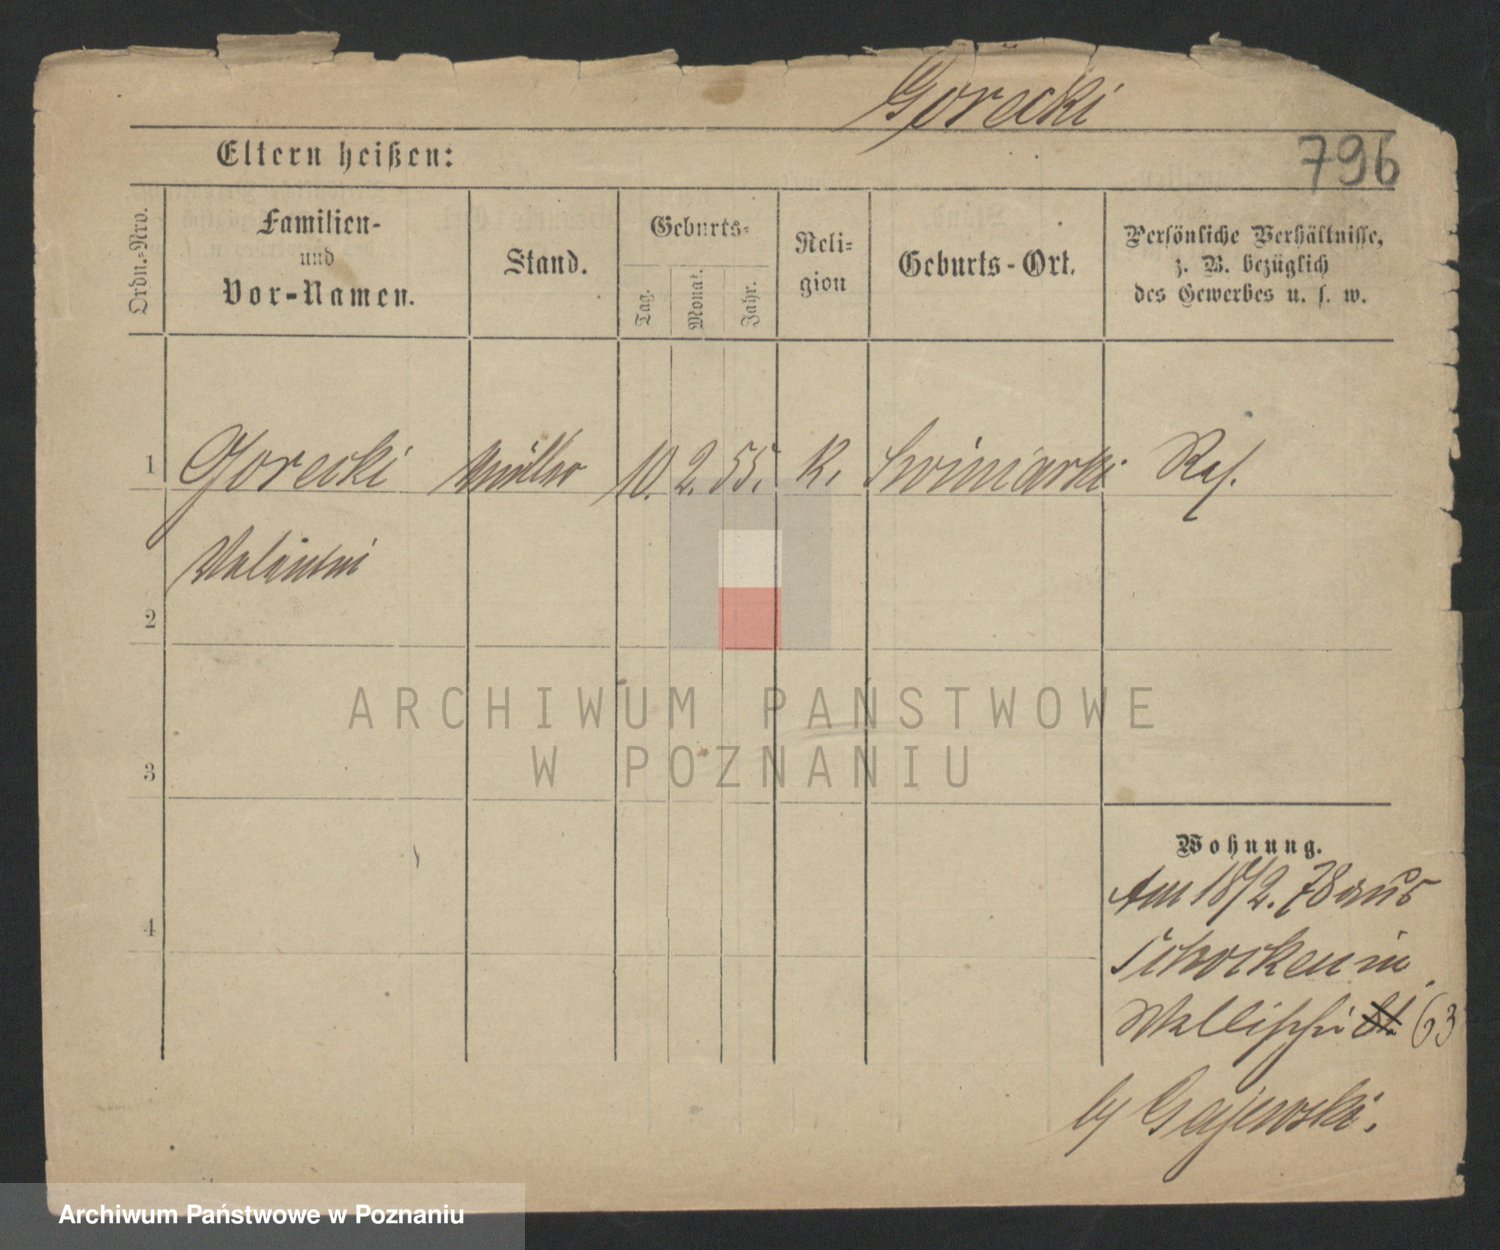 Gorecki
796
Eltern heißen:
Ordn.-Nro.
Familien-
und
Vor-Namen.
Stand.
Geburts-
Tag.
Monat.
Jahr.
Reli-
gion
Geburts-Ort.
Persönliche Verhältnisse,
z. B. bezüglich
des Gewerbes u. s. w.
1 Gorecki Müller 10. 2. 55. K. Swiniarki Res.
Valentin
2
3
4
ARCHIWUM PAŃSTWOWE
W POZNANIU
Wohnung.
Am 18/2. 78 aus
Schocken in
Wallischei 63
by Gajewski.
Archiwum Państwowe w Poznaniu